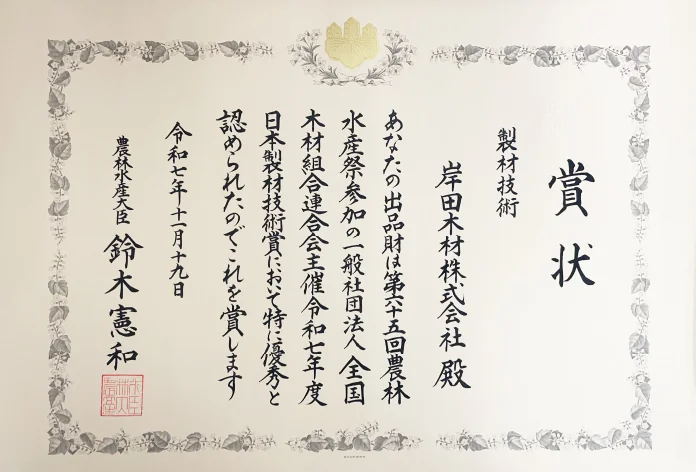 賞状
製材技術
岸田木材株式会社 殿
あなたの出品財は第六十五回農林
水産祭参加の一般社団法人 全国
木材組合連合会主催令和七年度
日本製材技術賞において特に優秀と
認められたのでこれを賞します
令和七年十一月十九日
農林水産大臣 鈴木憲和